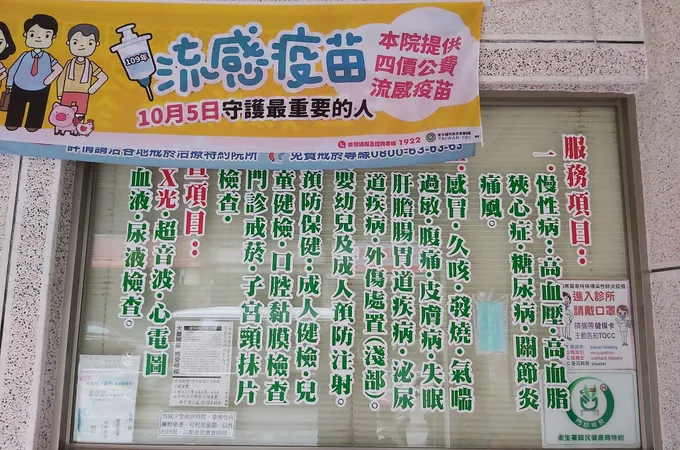 109年
流感疫苗
本院提供
四價公費
流感疫苗
10月5日守護最重要的人
1922
TAIWAN CDC
詳情請洽各地戒菸治療特約院所
免費戒菸專線0800-63-63-63
服務項目：
一.慢性病：高血壓·高血脂
狹心症·糖尿病·關節炎
痛風。
感冒·久咳·發燒·氣喘
過敏·腹痛·皮膚病·失眠
肝膽腸胃道疾病·泌尿
道疾病·外傷處置(淺部)。
嬰幼兒及成人預防注射。
預防保健：成人健檢·兒
童健檢·口腔黏膜檢查
門診戒菸·子宮頸抹片
檢查·
項目：
X光·超音波·心電圖
血液·尿液檢查。
進入診所
請戴口罩
請攜帶健保卡
主動告知TOCC
travel history
occupation
contact history
cluster
門診戒菸
衛生署國民健康局特約